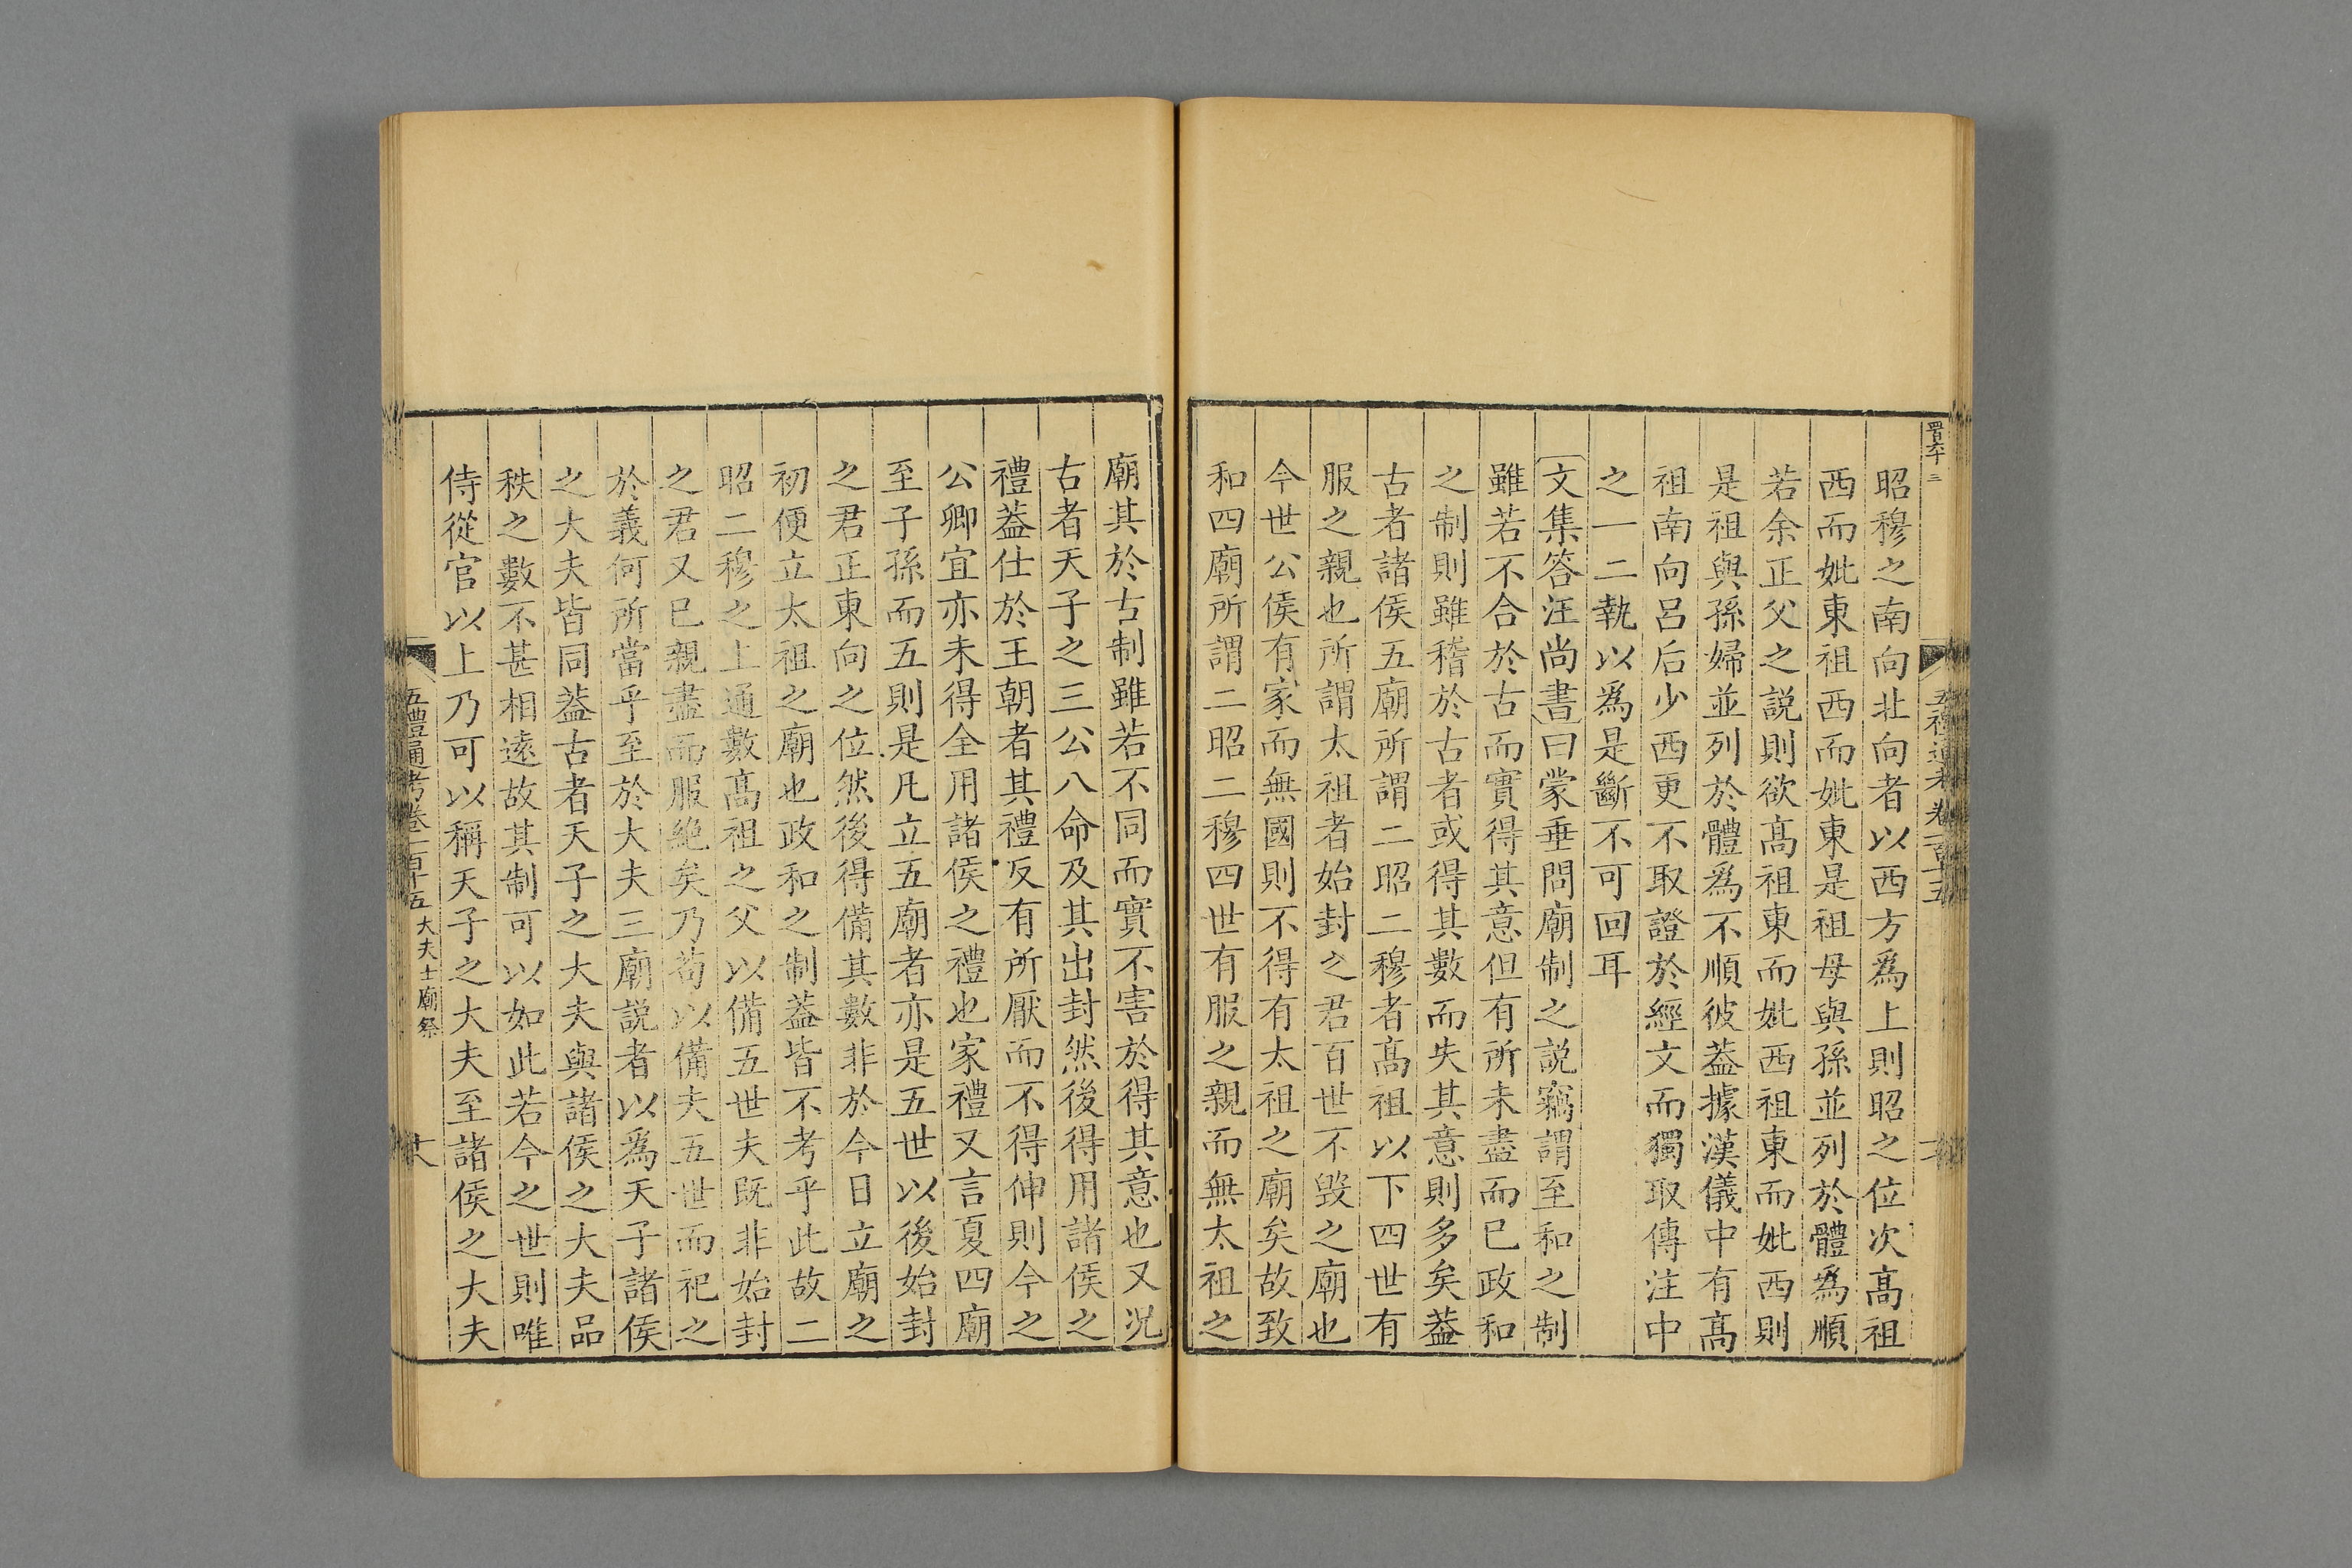 昭穆之南向北向者以西方爲上則昭之位次高祖
西而妣東祖西而妣東是祖母與孫並列於體爲順
若余正父之説則欲高祖東而妣西祖東而妣西則
是祖與孫婦並列於體爲不順彼葢據漢儀中有高
祖南向呂后少西更不取證於經文而獨取傳注中
之一二執以爲是斷不可回耳
文集答汪尚書曰蒙垂問廟制之説竊謂至和之制
雖若不合於古而實得其意但有所未盡而已政和
之制則雖稽於古者或得其數而失其意則多矣葢
古者諸侯五廟所謂二昭二穆者高祖以下四世有
服之親也所謂太祖者始封之君百世不毀之廟也
今世公侯有家而無國則不得有太祖之廟矣故致
和四廟所謂二昭二穆四世有服之親而無太祖之
廟其於古制雖若不同而實不害於得其意也又況
古者天子之三公八命及其出封然後得用諸侯之
禮葢仕於王朝者其禮反有所厭而不得伸則今之
公卿宜亦未得全用諸侯之禮也家禮又言夏四廟
至子孫而五則是凡立五廟者亦是五世以後始封
之君正東向之位然後得備其數非於今日立廟之
初便立太祖之廟也政和之制葢皆不考乎此故二
昭二穆之上通數高祖之父以備五世夫既非始封
之君又已親盡而服絶矣乃茍以備夫五世而祀之
於義何所當乎至於大夫三廟説者以爲天子諸侯
之大夫皆同葢古者天子之大夫與諸侯之大夫品
秩之數不甚相遠故其制可以如此若今之世則唯
侍從官以上乃可以稱天子之大夫至諸侯之大夫
五禮通考卷一百十五 大夫士廟祭